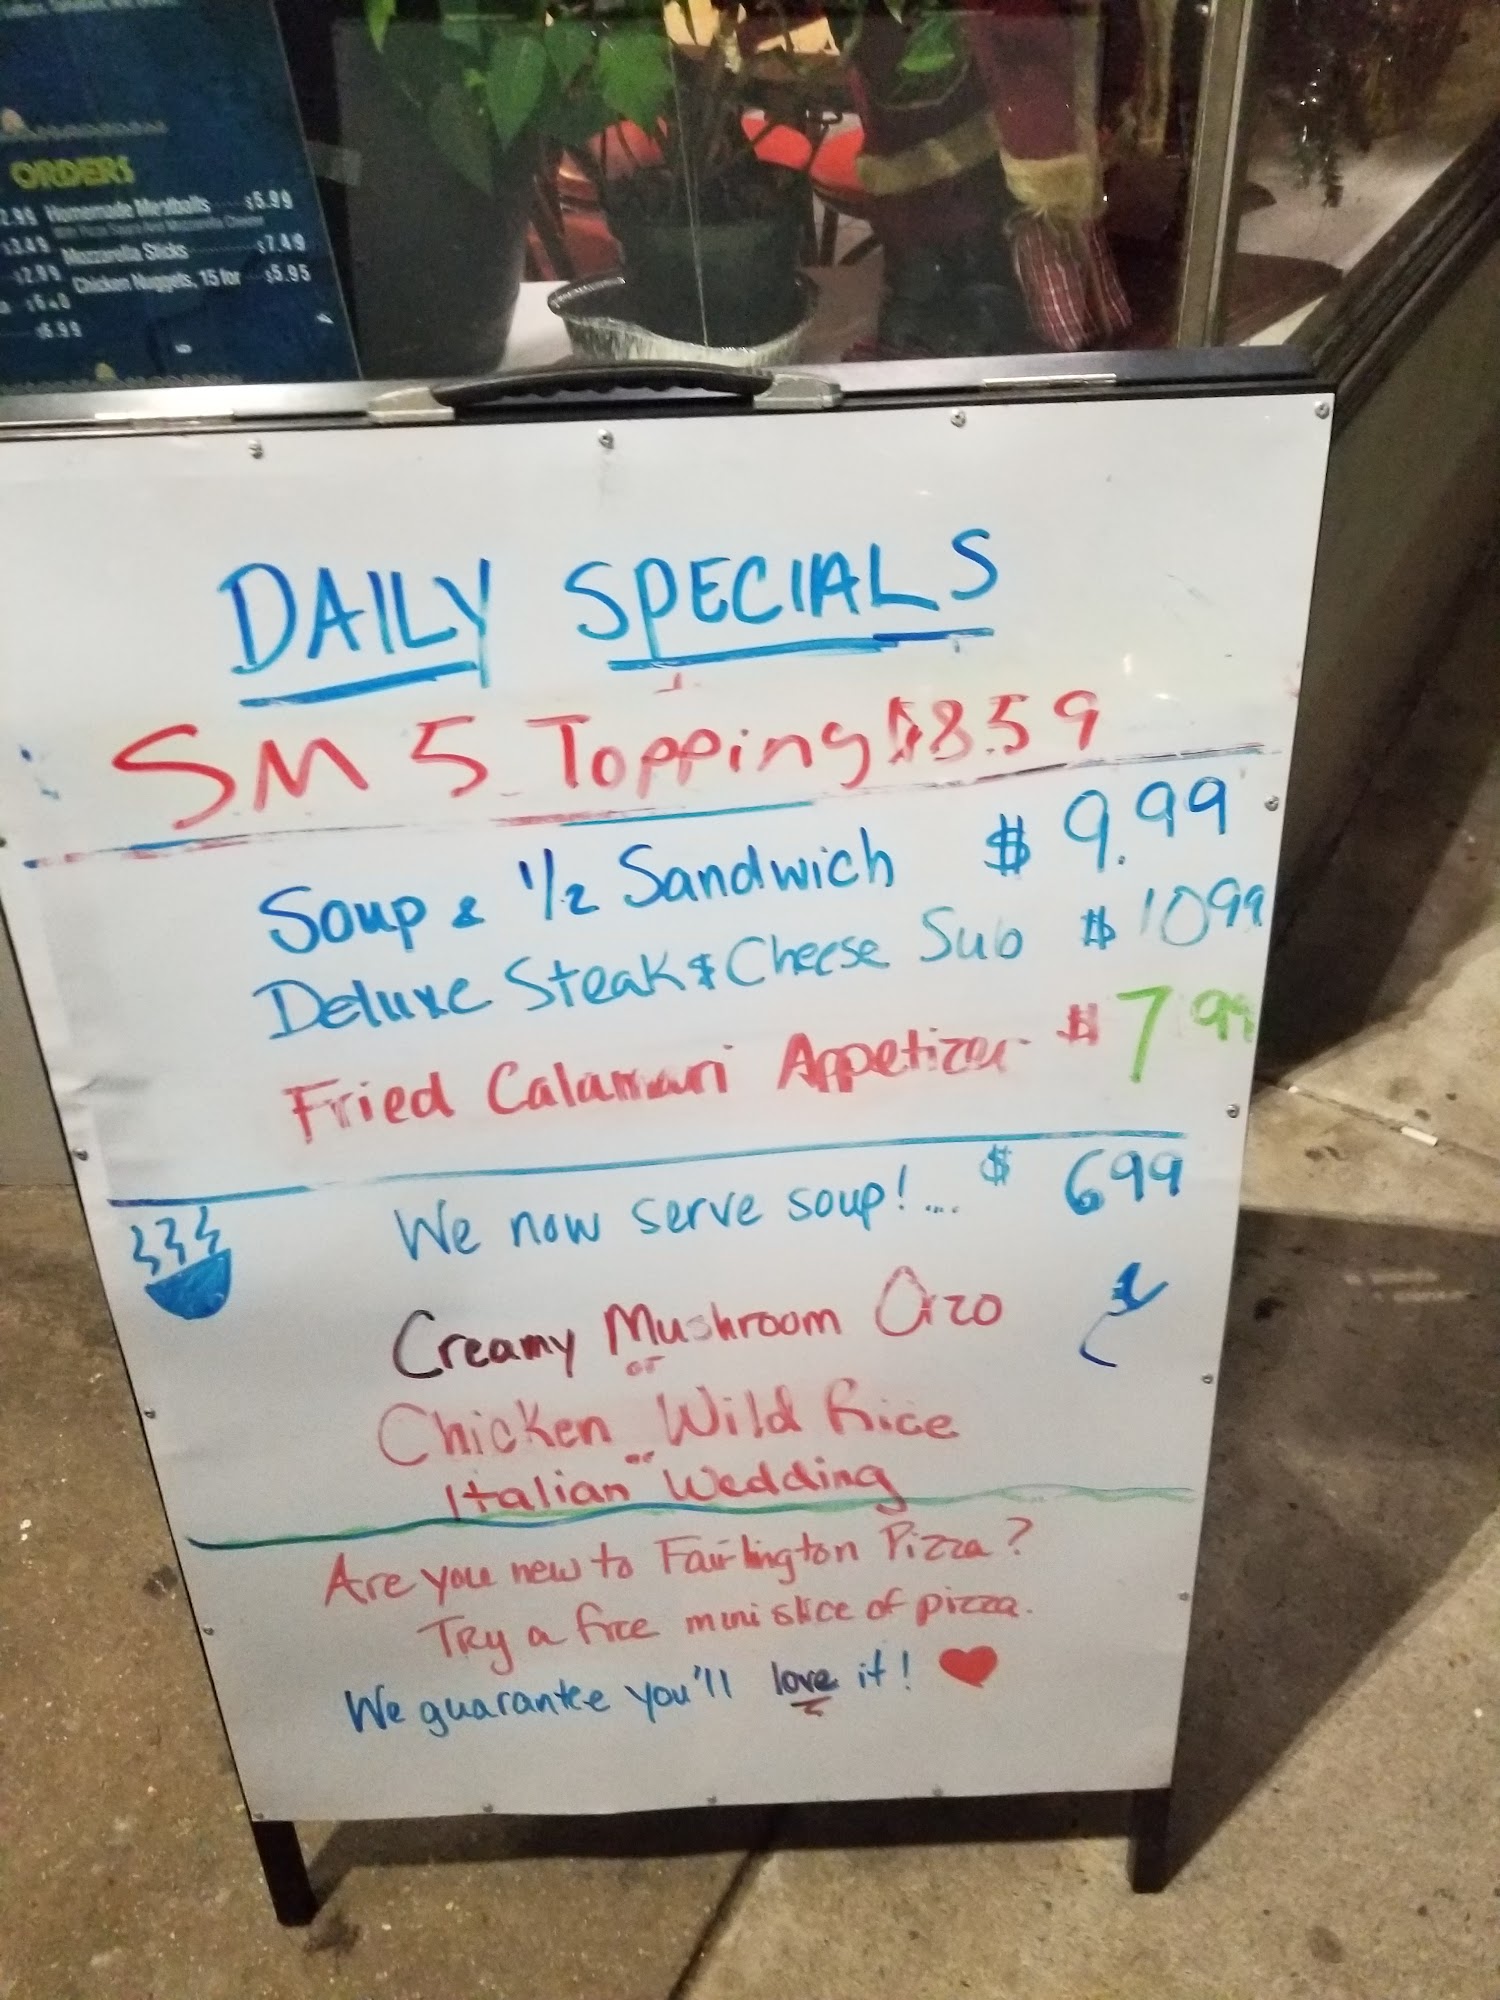 ORDERS
2.99 Homemade Meatballs $5.99
$3.49 Mozzarella Sticks $7.49
$2.99 Chicken Nuggets, 15 for $5.95
$6.99
DAILY SPECIALS
SM 5 Topping $8.59
Soup & 1/2 Sandwich $ 9.99
Deluxe Steak & Cheese Sub $ 10 99
Fried Calamari Appetizer $ 7 99
We now serve soup!.... $ 6 99
Creamy Mushroom Orzo
or
Chicken Wild Rice
or
Italian Wedding
Are you new to Fairlington Pizza?
Try a free mini slice of pizza.
We guarantee you'll love it!